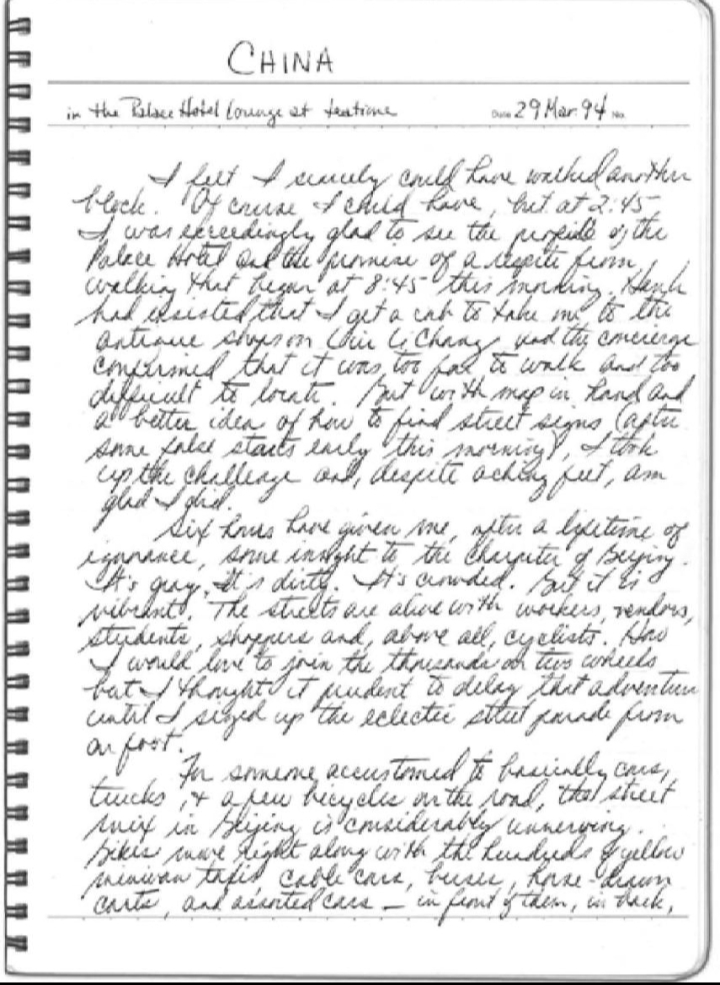 CHINA
in the Palace Hotel Lounge at teatime Date 29 Mar. 94 No.
I felt I scarcely could have walked another
block. Of course I could have, but at 2:45
I was exceedingly glad to see the profile of the
Palace Hotel and the promise of a respite from
walking that began at 8:45 this morning. Hank
had insisted that I get a cab to take me to the
antique shops on Liu Li Chang and the concierge
confirmed that it was too far to walk and too
difficult to locate. But with map in hand and
a better idea of how to find street signs (after
some false starts early this morning), I took
up the challenge and, despite aching feet, am
glad I did.
Six hours have given me, after a lifetime of
ignorance, some insight to the character of Beijing.
It's gray. It's dirty. It's crowded. But it is
vibrant. The streets are alive with workers, vendors,
students, shoppers and, above all, cyclists. How
I would love to join the thousands on two wheels
but I thought it prudent to delay that adventure
until I sized up the eclectic street parade from
on foot.
For someone accustomed to basically cars,
trucks, & a few bicycles on the road, the street
mix in Beijing is considerably unnerving.
Bikes move right along with the hundreds of yellow
minivan taxis, cable cars, buses, horse-drawn
carts, and assorted cars — in front of them, in back,